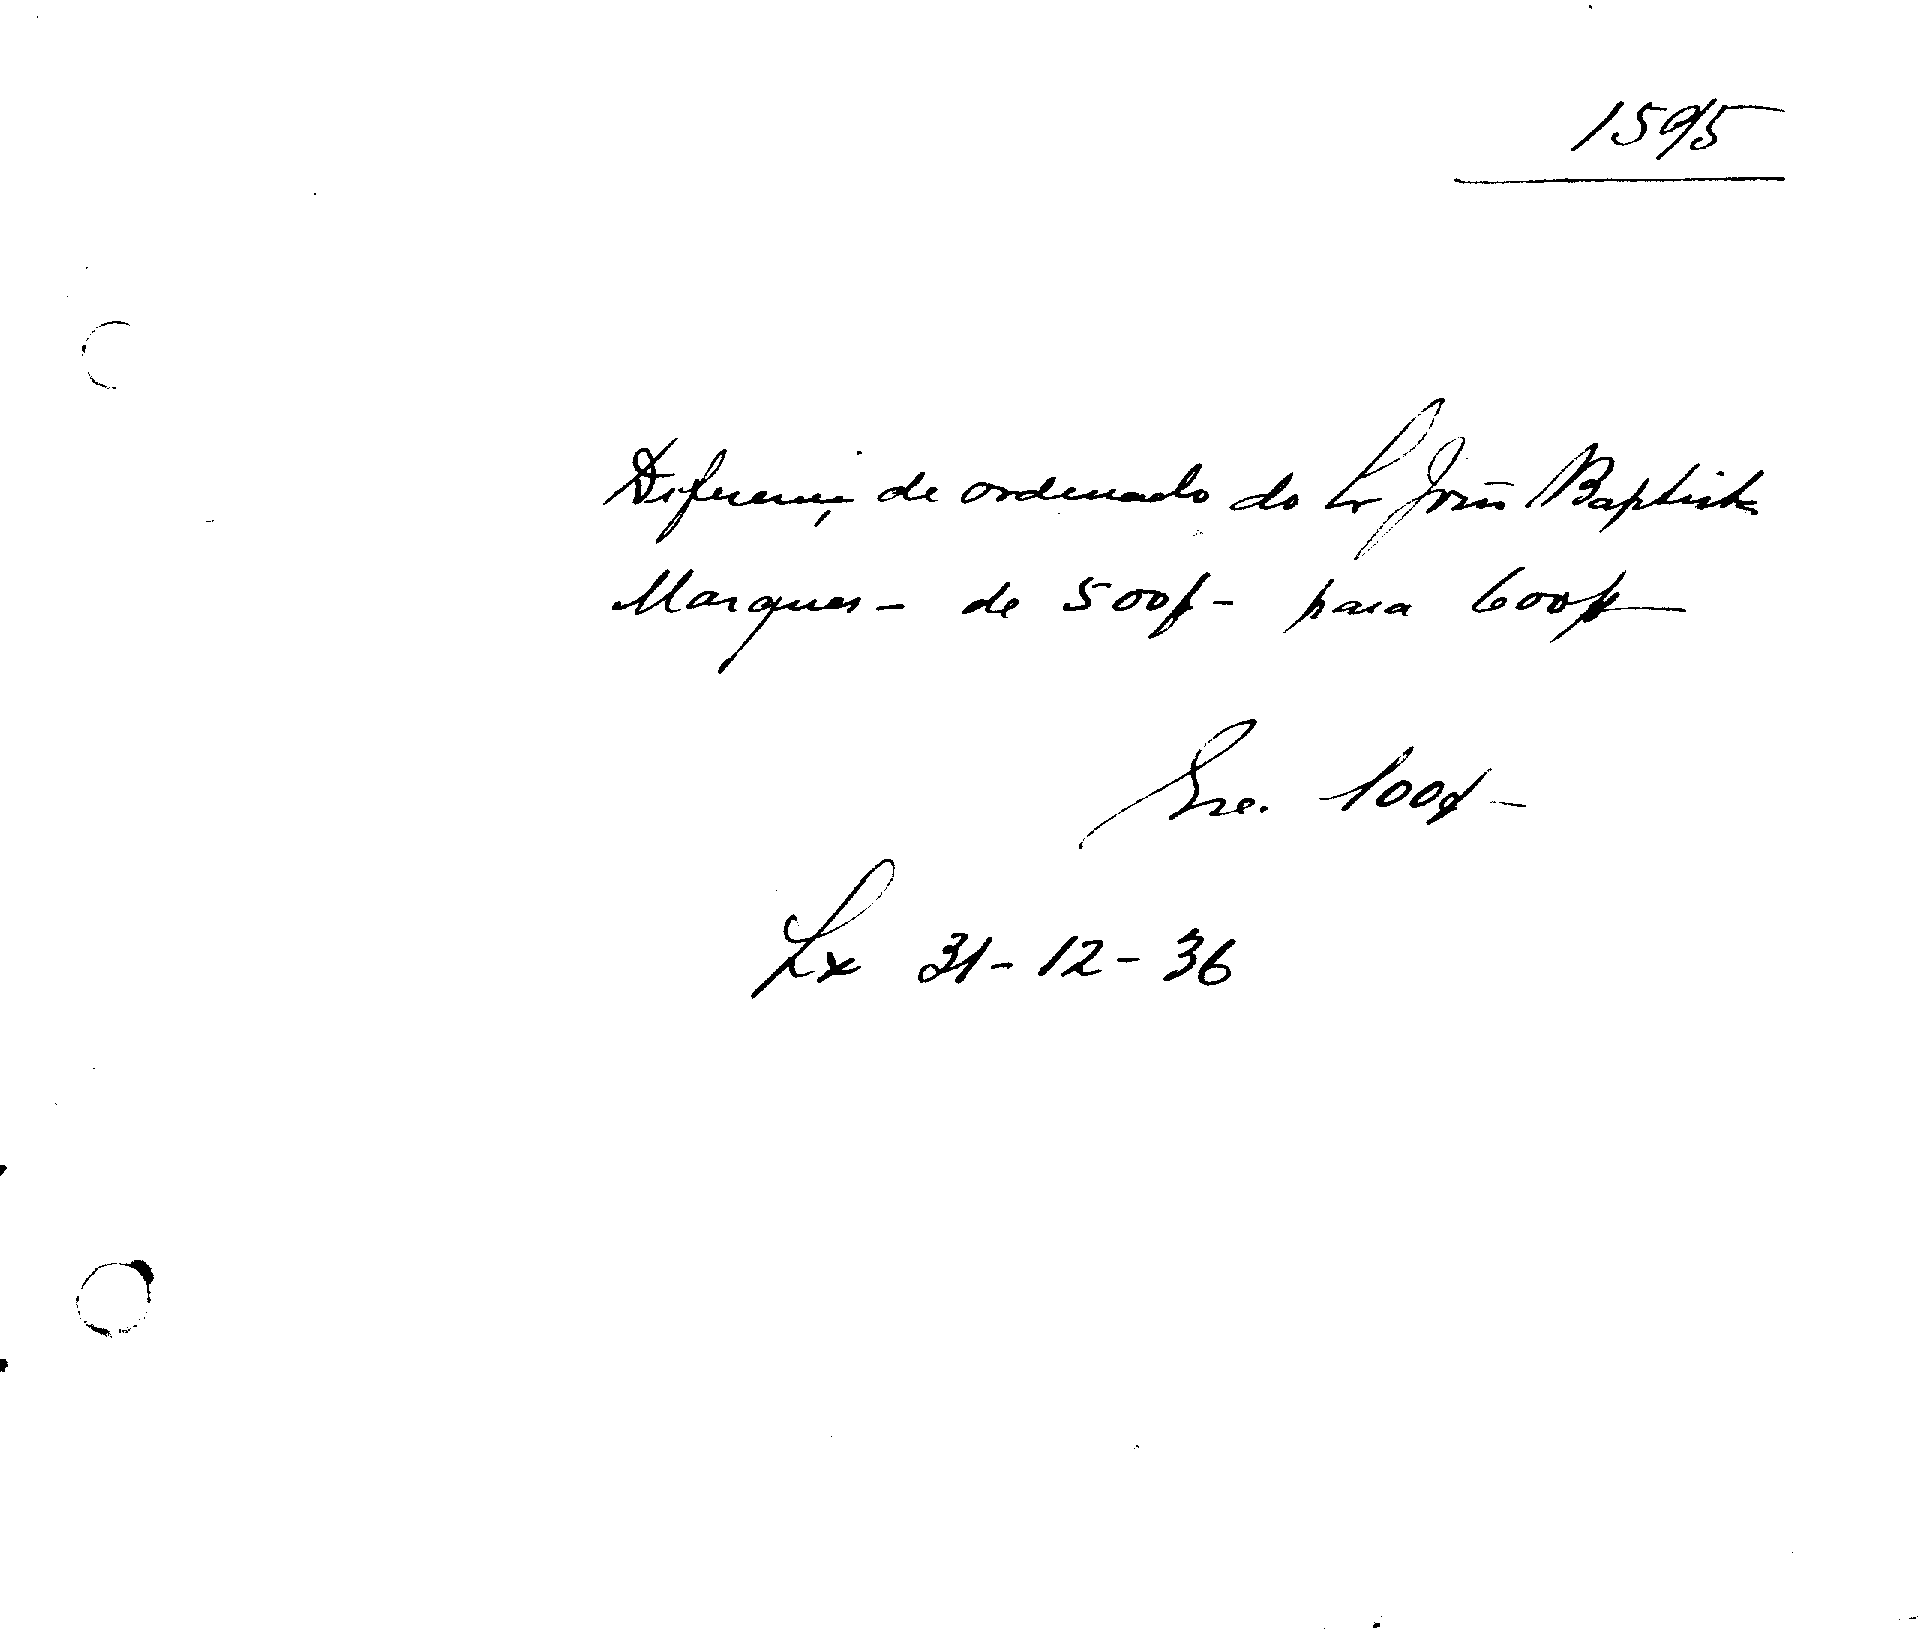 1595
Diferença de ordenado do Sr João Baptista
Marques - de 500$- para 600$
Esc. 100$-
Lx 31-12-36